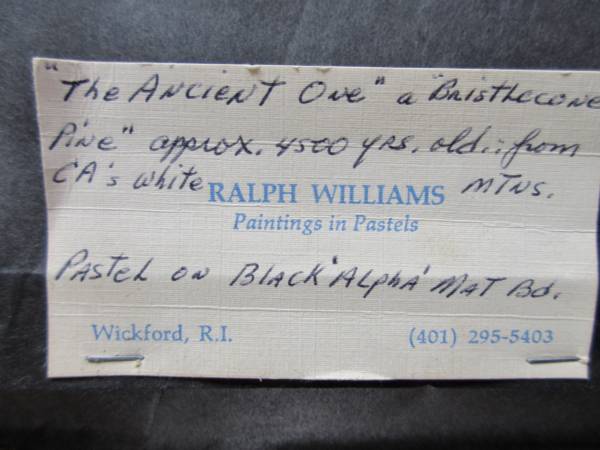 "The Ancient One" a "Bristlecone
Pine" approx. 4500 yrs. old... from
CA's white MTNS.
RALPH WILLIAMS
Paintings in Pastels
Pastel on Black 'Alpha' Mat Bd.
Wickford, R.I. (401) 295-5403